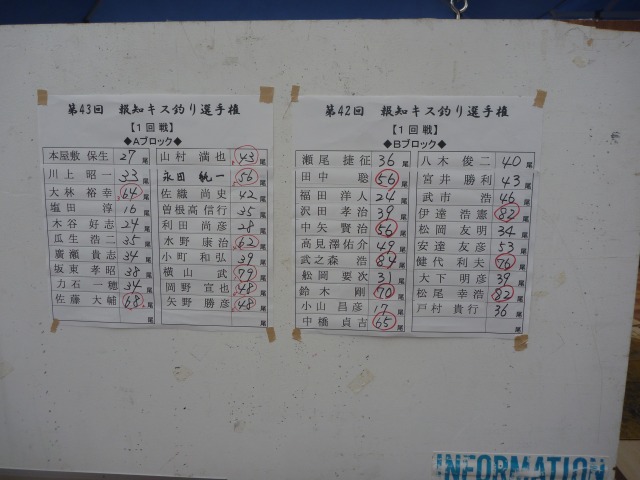 第43回 報知キス釣り選手権
【1回戦】
◆Aブロック◆
本屋敷 保生 27尾 山村 満也 43尾
川上 昭一 33尾 永田 純一 56尾
大林 裕幸 64尾 佐織 尚史 42尾
塩田 淳 16尾 曽根高信行 35尾
木谷 好志 24尾 利田 尚彦 28尾
瓜生 浩二 35尾 水野 康治 62尾
廣瀬 貴志 34尾 小町 和弘 39尾
坂東 孝昭 38尾 横山 武 79尾
力石 一穂 34尾 岡野 宣也 48尾
佐藤 大輔 68尾 矢野 勝彦 48尾
第42回 報知キス釣り選手権
【1回戦】
◆Bブロック◆
瀬尾 捷征 36尾 八木 俊二 40尾
田中 聡 56尾 宮井 勝利 43尾
福田 洋人 24尾 武市 浩 46尾
沢田 孝治 39尾 伊達 浩憲 82尾
中矢 賢治 56尾 松岡 友明 34尾
高見澤佑介 49尾 安達 友彦 53尾
武之森 浩 84尾 健代 利夫 76尾
舩岡 要次 31尾 大下 明彦 39尾
鈴木 剛 70尾 松尾 幸浩 82尾
小山 昌彦 17尾 戸村 貴行 36尾
中橋 貞吉 65尾 尾
INFORMATION